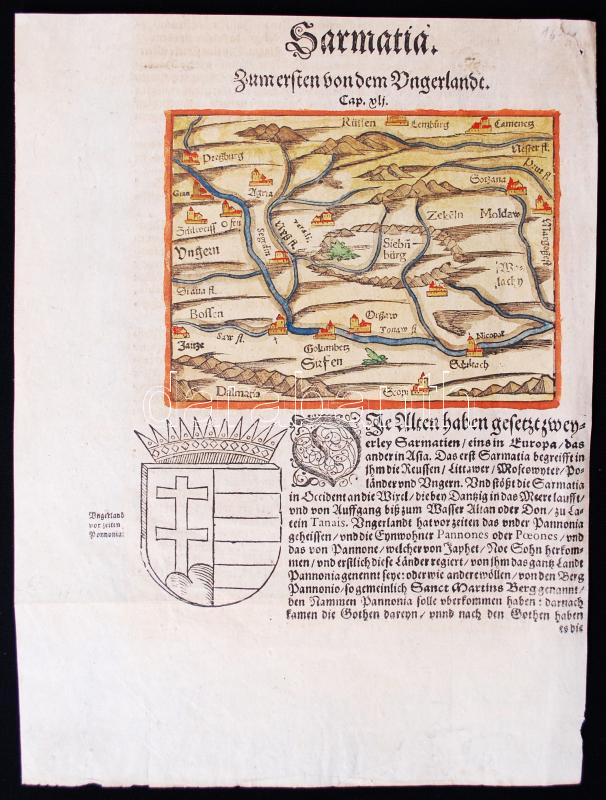 Sarmatia.
Zum ersten von dem Vngerlandt.
Cap. xlj.
Reüssen
Lemburg
Camenetz
Nester fl.
Preßburg
Prut fl.
Gran
Agria
Soczana
Ofen
Zekeln
Moldaw
Sieben
bürg
Vngern
Walachy
Bossen
Orsaw
Saw fl.
Tonaw fl.
Nicopol
Jaitze
Golumbetz
Sirfen
Dalmatia
Scopi
databanth
DJe Alten haben gesetzt zwey-
erley Sarmatien / eins in Europa / das
ander in Asia. Das erst Sarmatia begreifft in
jhm die Reussen / Littawer / Moscowyter / Po-
länder vnd Vngern. Vnd stößt die Sarmatia
in Occident an die Wixel / die bey Dantzig in das Meer laufft /
vnd von Auffgang biß zum Wasser Altan oder Don / zu La-
tein Tanais. Vngerlandt hat vor zeiten das vnder Pannonia
geheissen / vnd die Eynwohner Pannones oder Pœones / vnd
das von Pannone / welcher von Japhet / Noe Sohn herkom-
men / vnd erstlich diese Länder regiert / von jhm das gantz Landt
Pannonia genennt seye: oder wie andere wöllen / von den Berg
Pannonio / so gemeinlich Sanct Martins Berg genannt /
den Nammen Pannonia solle vberkommen haben: darnach
kamen die Gothen dareyn / vnnd nach den Gothen haben
es die
Vngerland
vor zeiten
Pannonia.